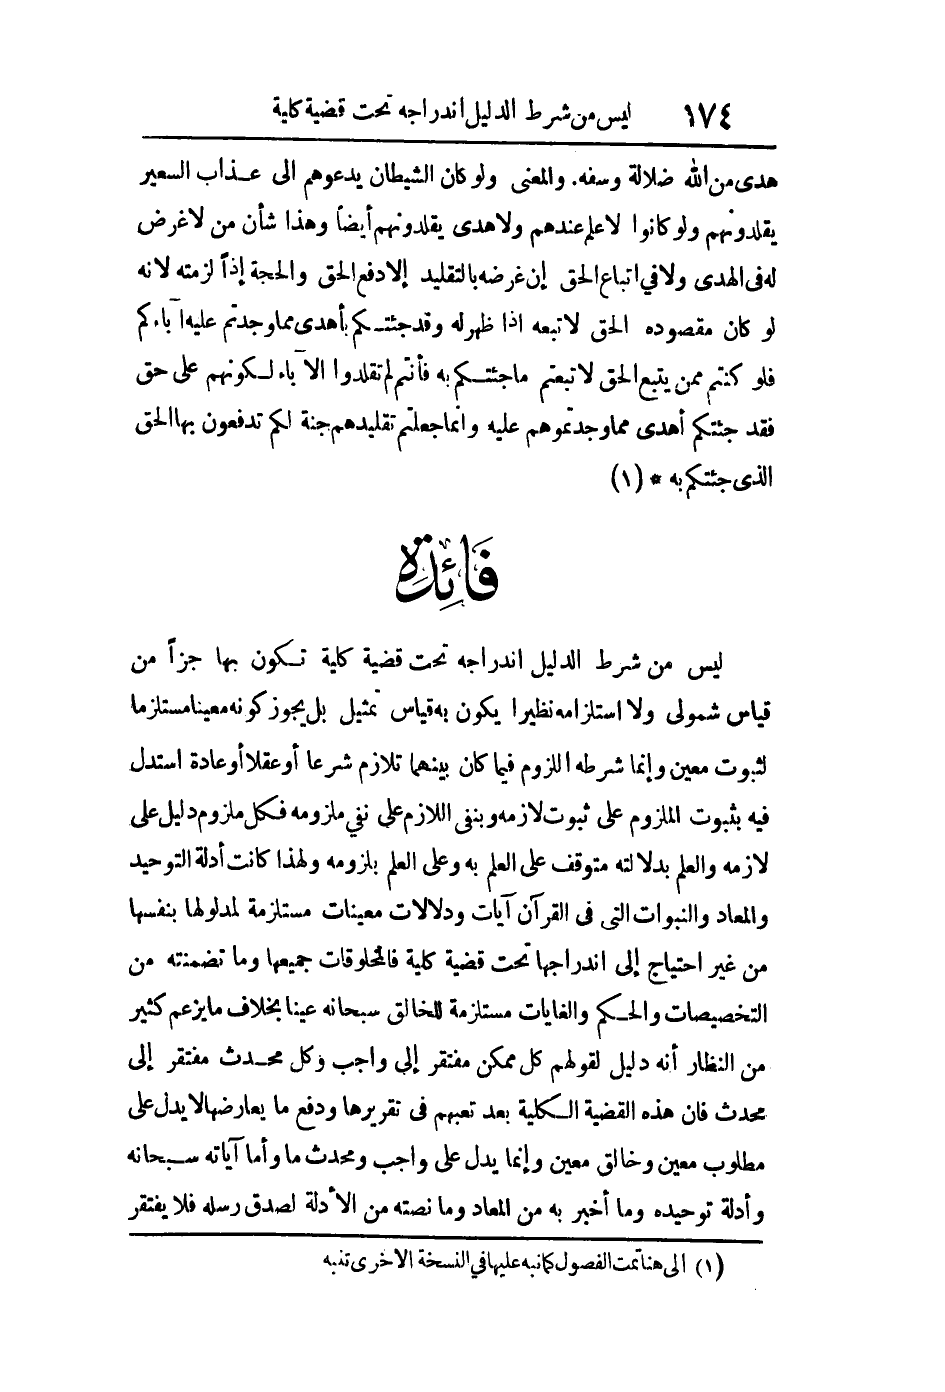 ١٧٤ ليس من شرط الدليل اندراجه تحت قضية كلية
هدى من الله ضلالة وسفه. والمعنى ولو كان الشيطان يدعوهم الى عذاب السعير
يقلدونهم ولو كانوا لا علم عندهم ولا هدى يقلدونهم أيضاً وهذا شأن من لا غرض
له فى الهدى ولا في اتباع الحق إن غرضه بالتقليد إلا دفع الحق والحجة إذاً لزمته لانه
لو كان مقصوده الحق لاتبعه اذا ظهر له وقد جئتكم بأهدى مما وجدتم عليه آباءكم
فلو كنتم ممن يتبع الحق لاتبعتم ما جئتكم به فأنتم لم تقلدوا الآباء لكونهم على حق
فقد جئتكم أهدى مما وجدتموهم عليه وانما جعلتم تقليدهم جنة لكم تدفعون بها الحق
الذى جئتكم به * (١)
فَائِدَة
ليس من شرط الدليل اندراجه تحت قضية كلية تكون بها جزأ من
قياس شمولى ولا استلزامه نظيرا يكون به قياس تمثيل بل يجوز كونه معينا مستلزما
لثبوت معين وإنما شرطه اللزوم فيما كان بينهما تلازم شرعا أو عقلا أو عادة استدل
فيه بثبوت الملزوم على ثبوت لازمه وبنفى اللازم على نفي ملزومه فكل ملزوم دليل على
لازمه والعلم بدلالته متوقف على العلم به وعلى العلم بلزومه ولهذا كانت أدلة التوحيد
والمعاد والنبوات التى فى القرآن آيات ودلالات معينات مستلزمة لمدلولها بنفسها
من غير احتياج إلى اندراجها تحت قضية كلية فالمخلوقات جميعها وما تضمنته من
التخصيصات والحكم والغايات مستلزمة للخالق سبحانه عينا بخلاف ما يزعم كثير
من النظار أنه دليل لقولهم كل ممكن مفتقر إلى واجب وكل محدث مفتقر إلى
محدث فان هذه القضية الكلية بعد تعبهم فى تقريرها ودفع ما يعارضها لا يدل على
مطلوب معين وخالق معين وإنما يدل على واجب ومحدث ما وأما آياته سبحانه
وأدلة توحيده وما أخبر به من المعاد وما نصته من الأدلة لصدق رسله فلا يفتقر
(١) الى هنا تمت الفصول كما نبه عليها في النسخة الاخرى تنبه